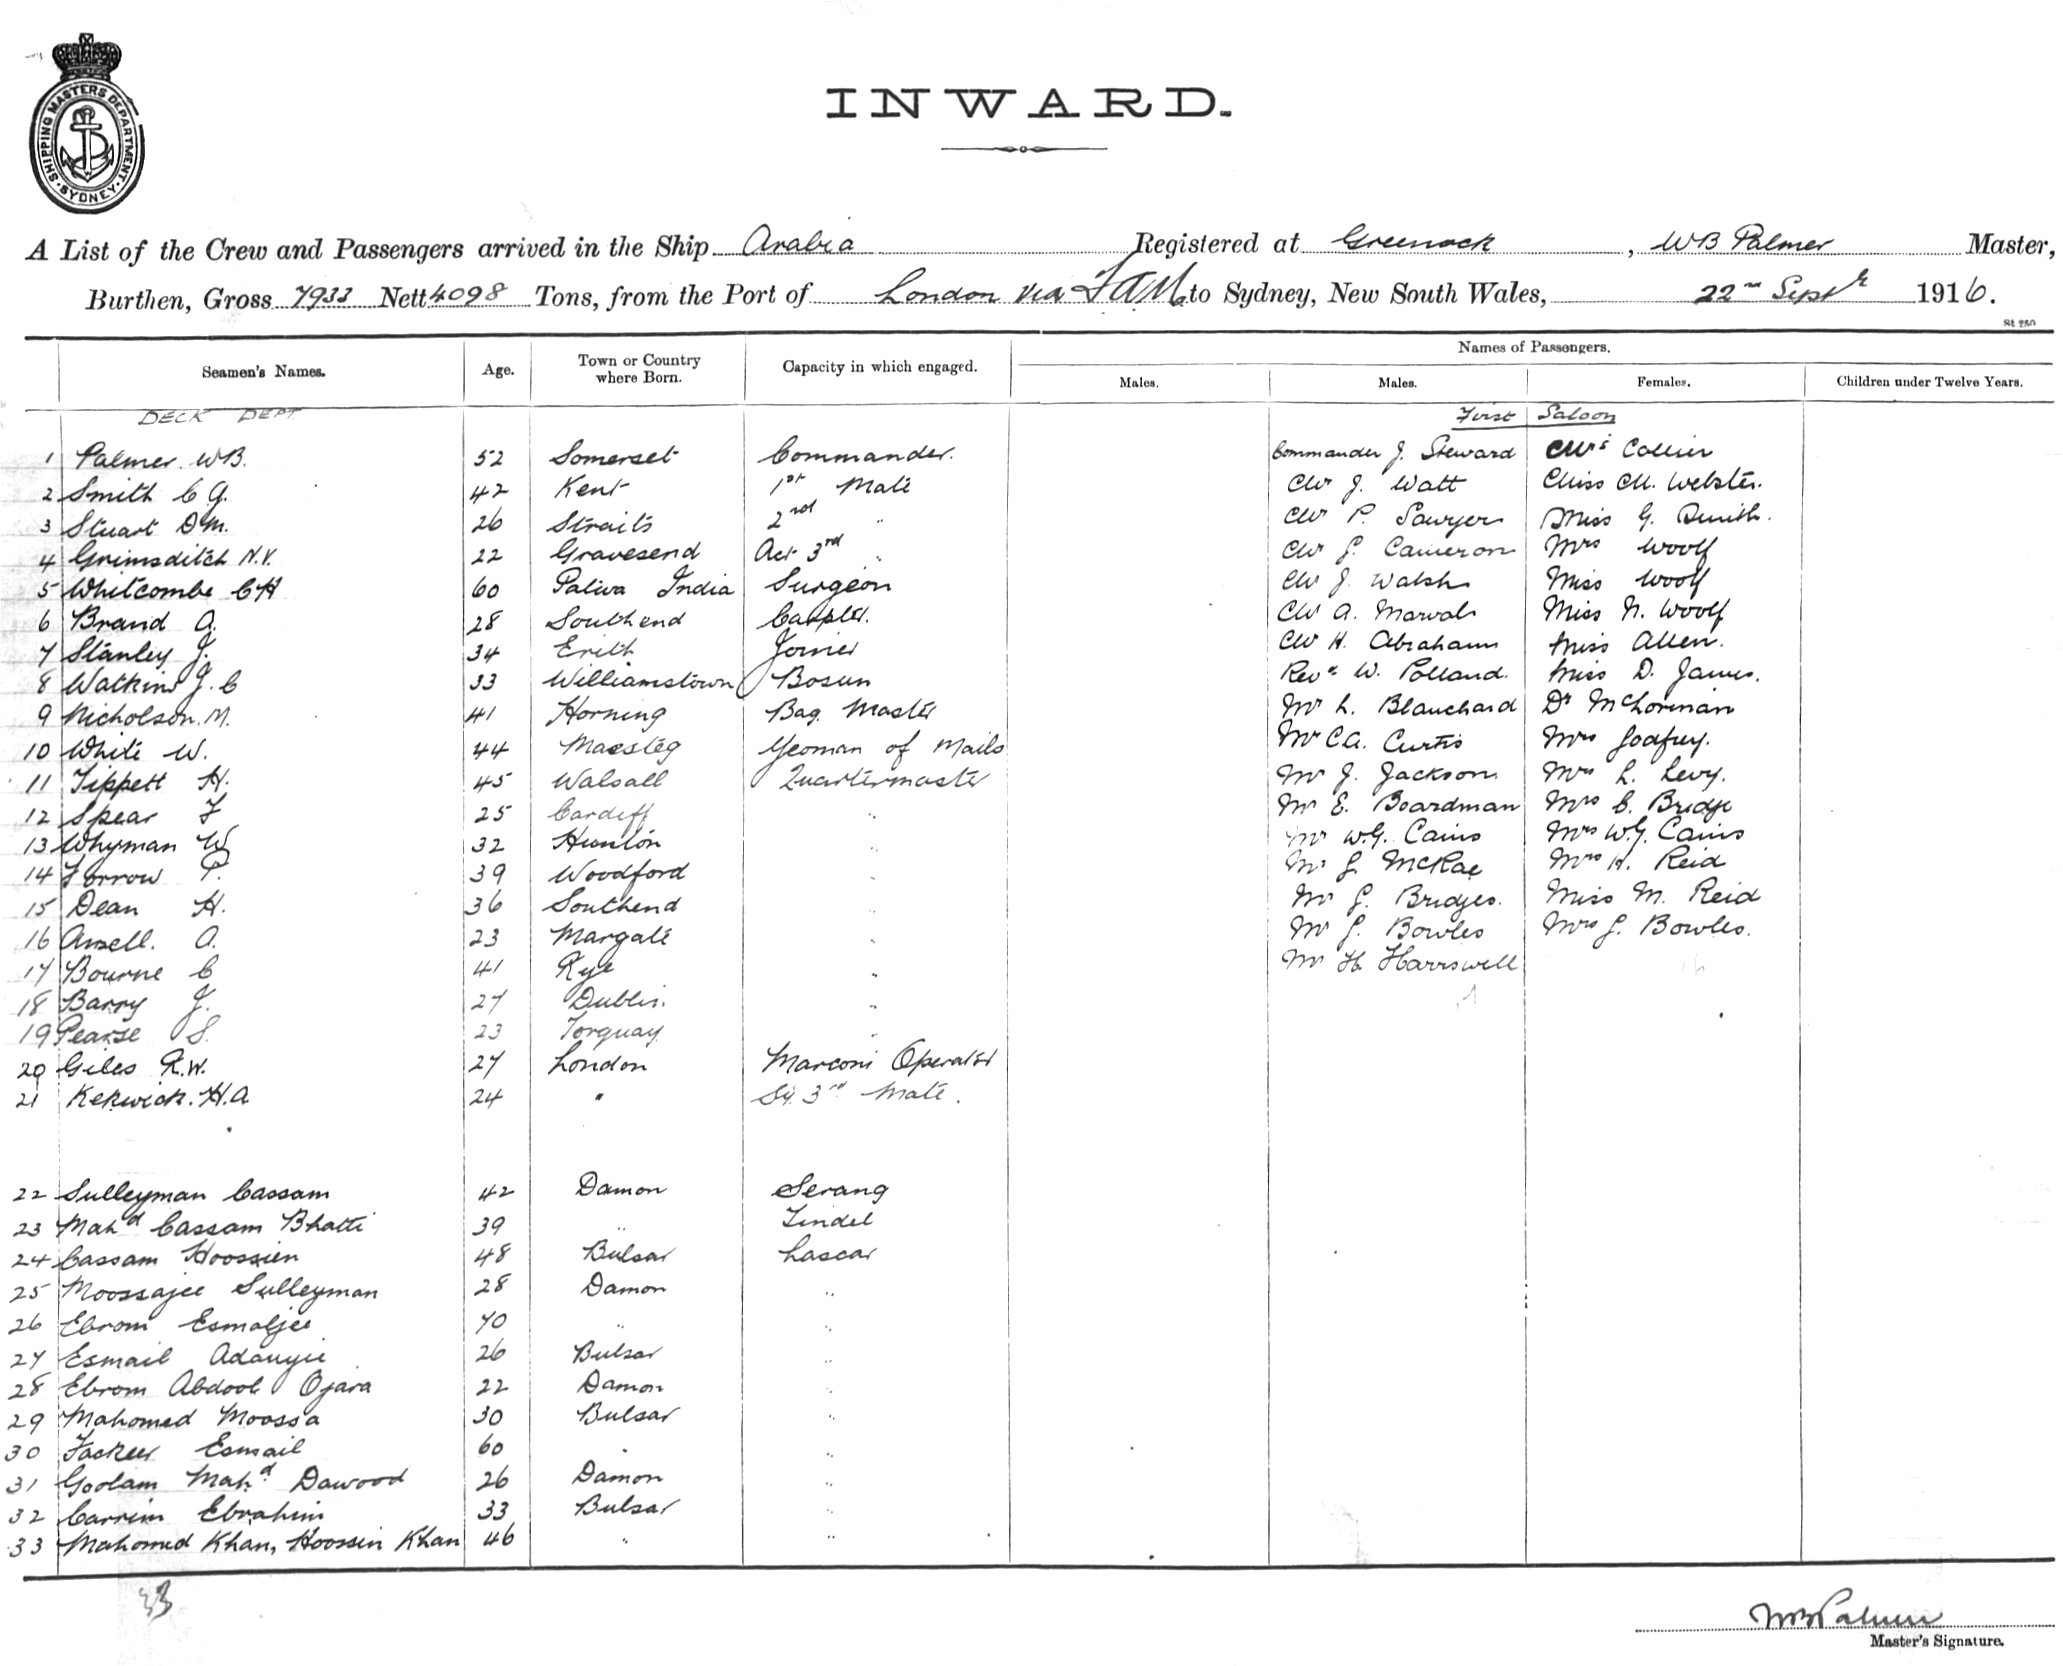 SHIPPING MASTERS DEPARTMENT
SYDNEY
INWARD.
A List of the Crew and Passengers arrived in the Ship Arabia Registered at Greenock, WB Palmer Master,
Burthen, Gross 7933 Nett 4098 Tons, from the Port of London via to Sydney, New South Wales, 22nd Septr 1916.
St 250
Seamen's Names. Age. Town or Country where Born. Capacity in which engaged. Names of Passengers.
Males. Males. Females. Children under Twelve Years.
DECK DEPT First Saloon
1 Palmer WB. 52 Somerset Commander. Commander J. Steward Mrs Collier
2 Smith C G. 42 Kent 1st Mate Mr J. Watt Miss M. Webster.
3 Stuart D.M. 26 Straits 2nd " Mr P. Sawyer Miss G. Smith.
4 Grimsditch N.V. 22 Gravesend Act 3rd " Mr G. Cameron Mrs Woolf
5 Whitcombe CH 60 India Surgeon Mr J. Walsh Miss Woolf
6 Brand A. 28 Southend Mr A. Miss N. Woolf
7 Stanley J. 34 Erith Joiner Mr H. Abrahams Miss Allen.
8 Watkins J. C 33 Williamstown Bosun Revd W. Polland. Miss D. James.
9 Nicholson. M. 41 Horning Bag. Master Mr L. Blanchard Dr
10 White W. 44 Maesteg Yeoman of Mails Mr C.A. Curtis Mrs Godfrey.
11 Tippett H. 45 Walsall Quartermaster Mr J. Jackson. Mrs L. Levy.
12 Spear F 25 Cardiff " Mr E. Boardman Mrs C. Bridge
13 Whyman W 32 " Mr W.G. Cains Mrs W.G. Cains
14 P. 39 Woodford " Mr J. McRae Mrs H. Reid
15 Dean H. 36 Southend " Mr G. Bridges. Miss M. Reid
16 A. 23 Margate " Mr G. Bowles Mrs G. Bowles.
17 Bourne C 41 Rye " Mr H. Harrswell
18 Barry J. 27 Dublin. "
19 Pearse S. 23 Torquay "
20 Giles R.W. 27 London Marconi Operator
21 Kekwick. H.A 24 " 3rd Mate.
22 Sulleyman Cassam 42 Damon Serang
23 Mahd Cassam Bhatti 39 " Tindel
24 Cassam Hoossien 48 Bulsar Lascar
25 Moossajee Sulleyman 28 Damon "
26 Ebrom Esmaljee 40 " "
27 Esmail 26 Bulsar "
28 Ebrom Abdool Ojara 22 Damon "
29 Mahomed Moossa 30 Bulsar "
30 Fackeer Esmail 60 " "
31 Goolam Mahd Dawood 26 Damon "
32 Carrim Ebrahim 33 Bulsar "
33 Mahomed Khan, Hoossin Khan 46 " "
33
WB Palmer
Master's Signature.